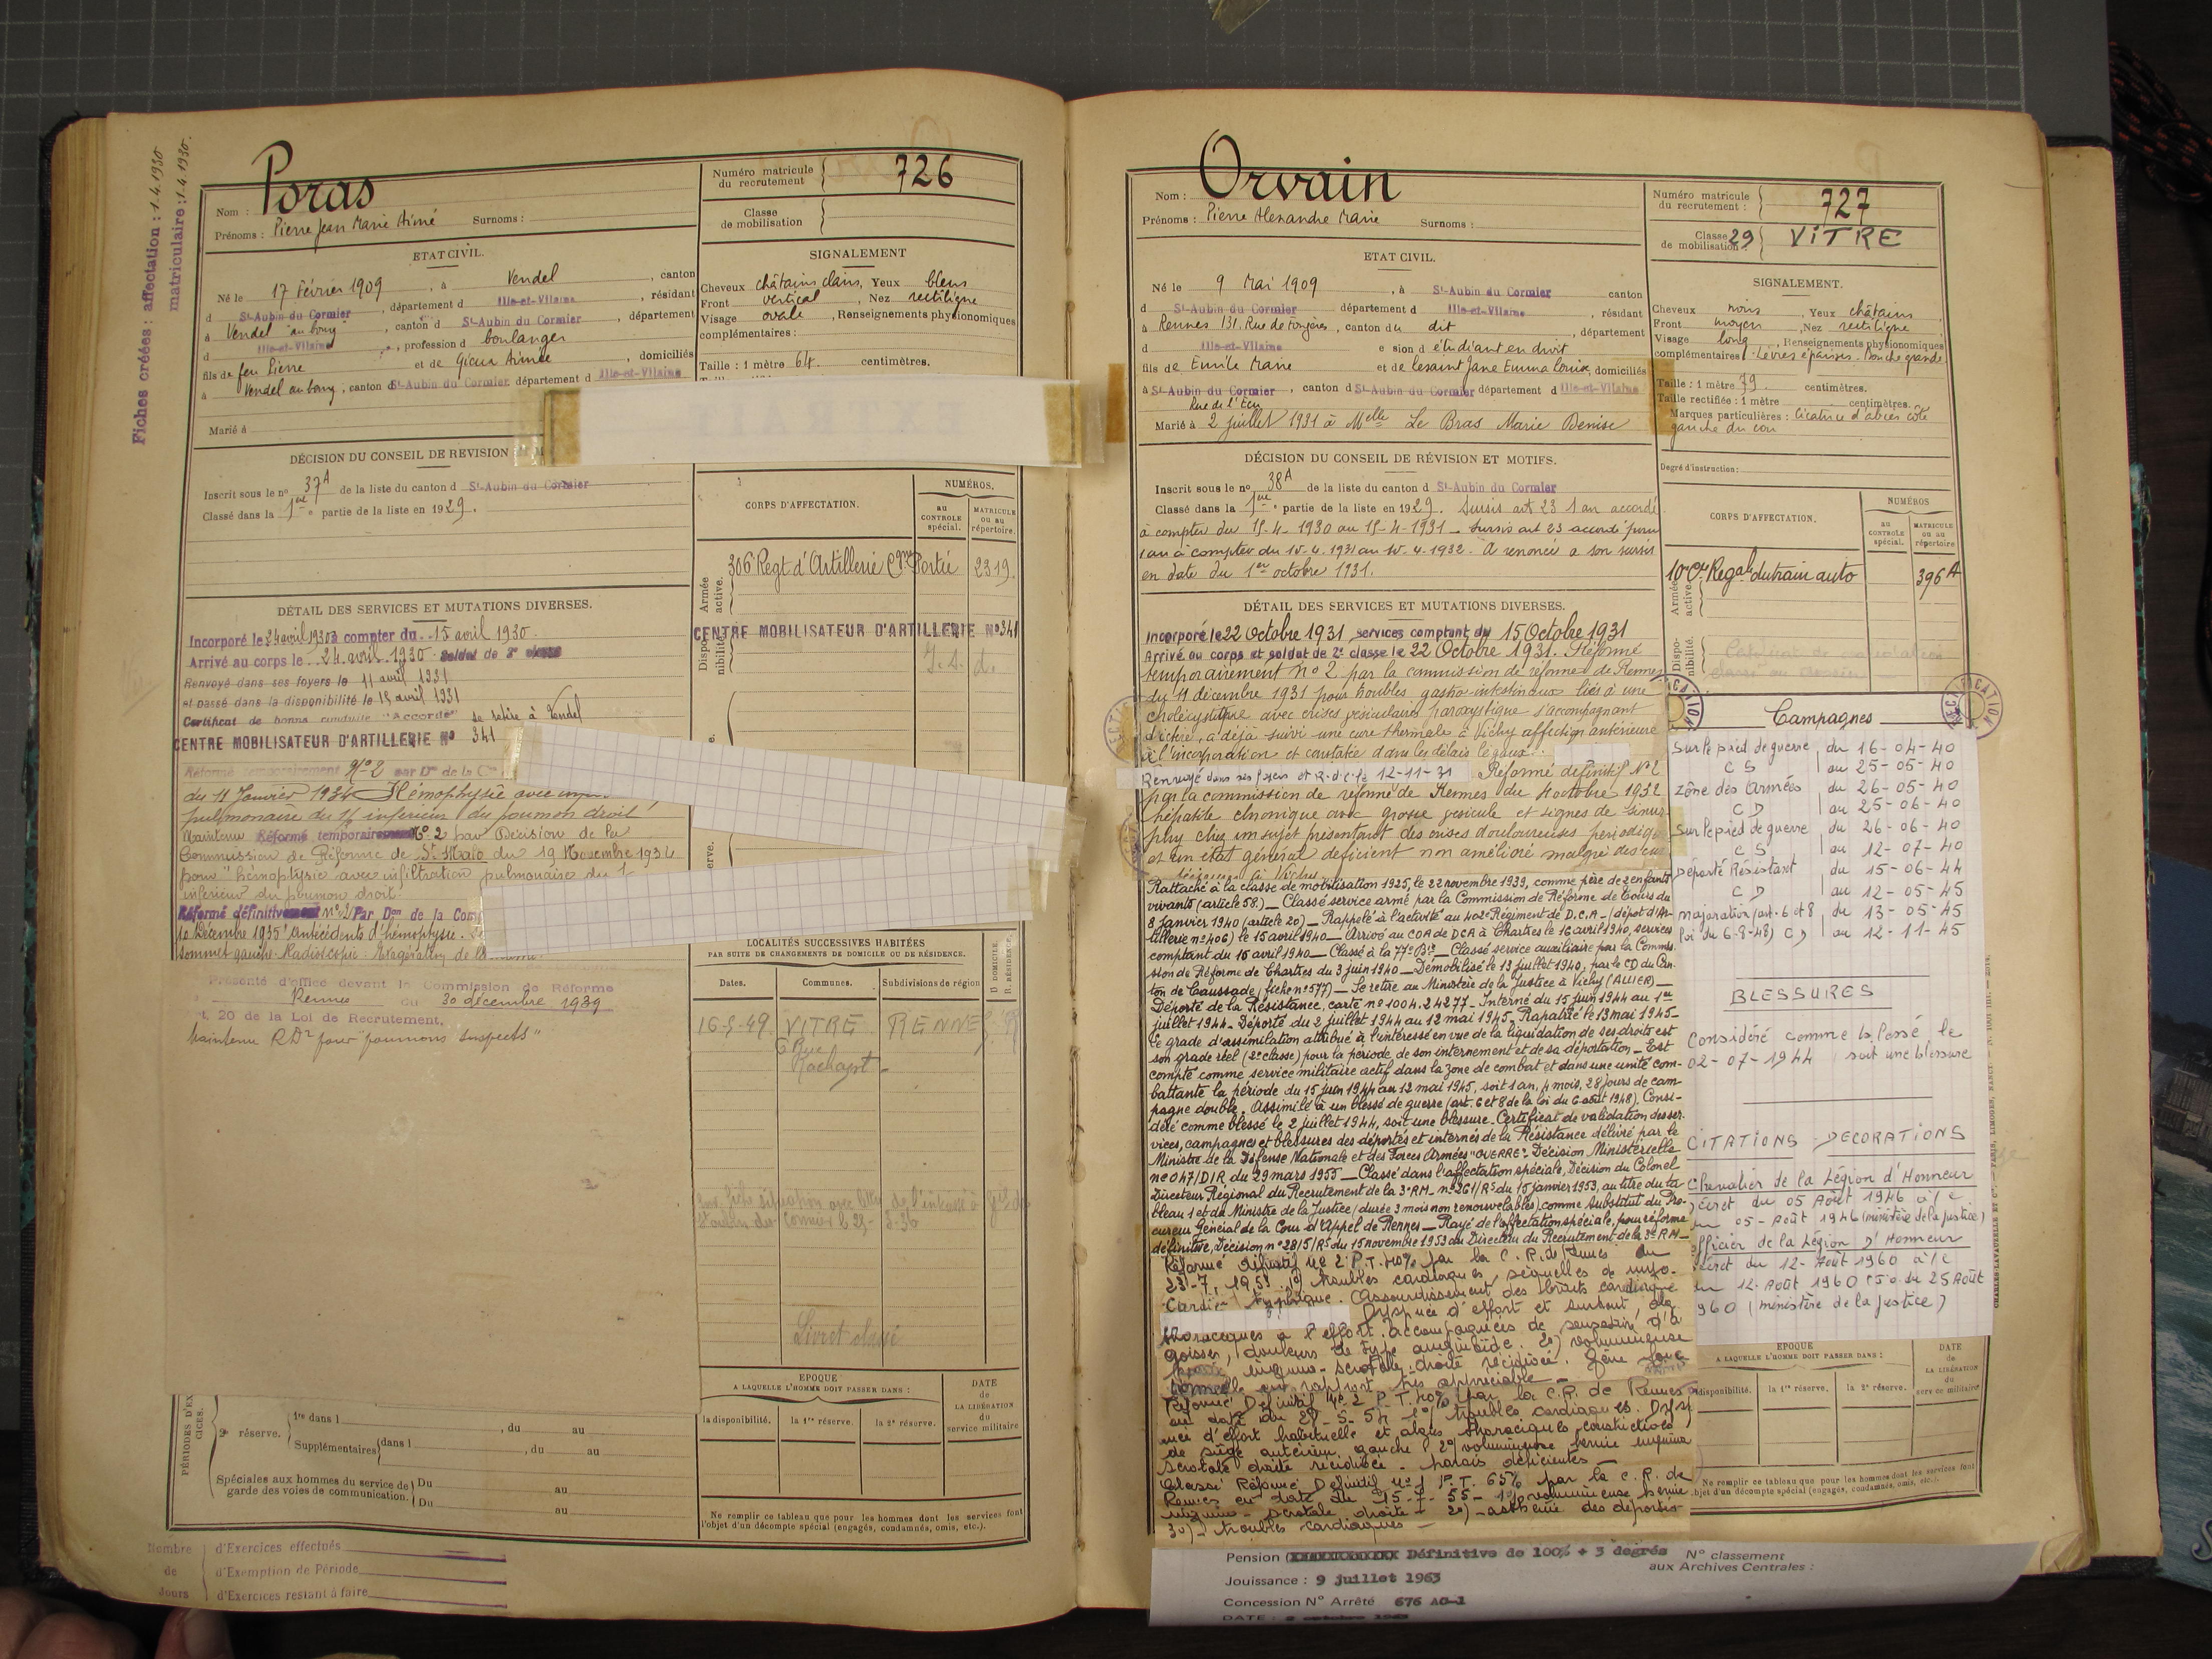 Fiches créées : affectation : 1.4.1930
matriculaire : 1.4.1930.
Nom : Poras
Prénoms : Pierre Jean Marie Aimé Surnoms :
Numéro matricule du recrutement 726
Classe de mobilisation
ETAT CIVIL.
Né le 17 Février 1909, à Vendel, canton
d St-Aubin du Cormier, département d Ille-et-Vilaine, résidant
à Vendel "au bourg", canton d St-Aubin du Cormier, département
d Ille-et-Vilaine, profession d boulanger
fils de feu Pierre et de Aimée, domiciliés
à Vendel au bourg, canton d St-Aubin du Cormier, département d Ille-et-Vilaine
Marié à
SIGNALEMENT
Cheveux châtains clairs, Yeux bleus
Front vertical, Nez rectiligne
Visage ovale, Renseignements physionomiques
complémentaires :
Taille : 1 mètre 64 centimètres.
DÉCISION DU CONSEIL DE REVISION
Inscrit sous le no 37A de la liste du canton d St-Aubin du Cormier
Classé dans la 1ère partie de la liste en 1929.
CORPS D'AFFECTATION.
NUMÉROS.
au CONTROLE spécial.
MATRICULE ou au répertoire.
Armée active.
306e Regt d'Artillerie Cgne Portée 2319.
CENTRE MOBILISATEUR D'ARTILLERIE No 341
Disponibilité.
DÉTAIL DES SERVICES ET MUTATIONS DIVERSES.
Incorporé le 24 avril 1930 à compter du 15 avril 1930.
Arrivé au corps le 24 avril 1930 Soldat de 2e classe
Renvoyé dans ses foyers le 11 avril 1931
et passé dans la disponibilité le 15 avril 1931
Certificat de bonne conduite "Accordé" se retire à Vendel
CENTRE MOBILISATEUR D'ARTILLERIE No 341
Réformé temporairement No 2 par Don de la
du 11 Janvier 1934 Hémophysie avec
pulmonaire du inférieur du poumon droit
Maintenu Réformé temporairement No 2 par Décision de la
Commission de Réforme de St Malo du 19 Novembre 1934
pour "hémoptysie avec infiltration pulmonaire du
inférieur du poumon droit.
Réformé définitivement No 2 Par Don de la Com
10 Décembre 1935 Antécédents d'hémoptysie.
sommet gauche. Radioscopie : Exagération de la
Présenté d'office devant la Commission de Réforme
Rennes du 30 décembre 1939
t. 20 de la Loi de Recrutement.
Maintenu RD2 pour "poumons suspects"
LOCALITÉS SUCCESSIVES HABITÉES
PAR SUITE DE CHANGEMENTS DE DOMICILE OU DE RÉSIDENCE.
Dates. Communes. Subdivisions de région D. DOMICILE. R. RÉSIDENCE.
16-5-49 VITRE RENNES R
6 Rue
Rachapt
Livret classé
EPOQUE
A LAQUELLE L'HOMME DOIT PASSER DANS :
DATE de LA LIBÉRATION du service militaire
la disponibilité. la 1re réserve. la 2e réserve.
PÉRIODES D'EXERCICES.
2e réserve. 1re dans l , du au
Supplémentaires dans l , du au
Spéciales aux hommes du service de garde des voies de communication. Du au
Du au
Ne remplir ce tableau que pour les hommes dont les services font
l'objet d'un décompte spécial (engagés, condamnés, omis, etc.).
Nombre de Jours
d'Exercices effectués
d'Exemption de Période
d'Exercices restant à faire
Nom : Orvain
Prénoms : Pierre Alexandre Marie Surnoms :
Numéro matricule du recrutement : 727
Classe de mobilisation : 29 VITRE
ETAT CIVIL.
Né le 9 Mai 1909, à St-Aubin du Cormier canton
d St-Aubin du Cormier département d Ille-et-Vilaine, résidant
à Rennes 131, Rue de Fougères, canton du dit, département
d Ille-et-Vilaine e sion d étudiant en droit
fils de Emile Marie et de Lesaint Jane Emma Louise, domiciliés
à St-Aubin du Cormier, canton d St-Aubin du Cormier département d Ille-et-Vilaine
Rue de l'Ecu
Marié à 2 juillet 1931 à Melle Le Bras Marie Denise
SIGNALEMENT.
Cheveux noirs, Yeux châtains
Front moyen, Nez rectiligne
Visage long, Renseignements physionomiques
complémentaires : Lèvres épaisses. Bouche grande
Taille : 1 mètre 79. centimètres.
Taille rectifiée : 1 mètre centimètres.
Marques particulières : Cicatrice d'abcès côté
gauche du cou
Degré d'instruction :
DÉCISION DU CONSEIL DE RÉVISION ET MOTIFS.
Inscrit sous le no 38A de la liste du canton d St-Aubin du Cormier
Classé dans la 1ère partie de la liste en 1929. Sursis art 23 1 an accordé
à compter du 15-4-1930 au 15-4-1931 - Sursis art 23 accordé pour
1 an à compter du 15.4.1931 au 15.4.1932. A renoncé à son sursis
en date du 1er octobre 1931.
CORPS D'AFFECTATION.
NUMÉROS
au CONTROLE spécial.
MATRICULE ou au répertoire
Armée active.
10e Cie Regale du train auto 396 A
Disponibilité.
DÉTAIL DES SERVICES ET MUTATIONS DIVERSES.
Incorporé le 22 Octobre 1931 services comptant du 15 Octobre 1931
Arrivé au corps et soldat de 2e classe le 22 Octobre 1931. Réformé
temporairement No 2 par la commission de réforme de Rennes
du 11 décembre 1931 pour troubles gastro-intestinaux liés à une
cholécystite avec crises vésiculaires paroxystique s'accompagnant
d'ictère, a déjà suivi une cure thermale à Vichy affection antérieure
à l'incorporation et constatée dans les délais légaux.
Renvoyé dans ses foyers et R.d.c. le 12-11-31 Réformé définitif No 2
par la commission de réforme de Rennes du 4 octobre 1932
hépatite chronique avec grosse vésicule et signes de
chez un sujet présentant des crises douloureuses
et un état général déficient non amélioré malgré des
Rattaché à la classe de mobilisation 1925, le 22 novembre 1939, comme père de 2 enfants
vivants (article 58.) — Classé service armé par la Commission de Réforme de Tours du
8 janvier 1940 (article 20) — Rappelé à l'activité au 402e Régiment de D.C.A - (dépôt d'Ar-
tillerie no 406) le 15 avril 1940 — Arrivé au COA de DCA à Chartres le 16 avril 1940, services
comptant du 15 avril 1940 — Classé à la 77e Bie — Classé service auxiliaire par la Commis-
sion de Réforme de Chartres du 3 juin 1940 — Démobilisé le 13 juillet 1940, par le CD du Can-
ton de Caussade (fiche no 577) — Se retire au Ministère de la Justice à Vichy (ALLIER) —
Déporté de la Résistance, carte no 1004.24277 - Interné du 15 juin 1944 au 1er
juillet 1944 - Déporté du 2 juillet 1944 au 12 mai 1945 - Rapatrié le 13 mai 1945 -
Le grade d'assimilation attribué à l'intéressé en vue de la liquidation de ses droits est
son grade réel (2e classe) pour la période de son internement et de sa déportation — Est
compté comme service militaire actif dans la zone de combat et dans une unité com-
battante la période du 15 juin 1944 au 12 mai 1945, soit 1 an, 4 mois, 28 jours de cam-
pagne double. Assimilé à un blessé de guerre (art. 6 et 8 de la loi du 6 août 1948). Consi-
déré comme blessé le 2 juillet 1944, soit une blessure. Certificat de validation des ser-
vices, campagnes et blessures des déportés et internés de la Résistance délivré par le
Ministre de la Défense Nationale et des Forces Armées "GUERRE". Décision Ministérielle
no 047/DIR du 29 mars 1955 — Classé dans l'affectation spéciale, Décision du Colonel
Directeur Régional du Recrutement de la 3e RM. no 261/RS du 15 janvier 1953, au titre du ta-
bleau 1 et du Ministre de la Justice (durée 3 mois non renouvelables) comme Substitut du Pro-
cureur Général de la Cour d'Appel de Rennes — Rayé de l'affectation spéciale, pour réforme
définitive, Décision no 2815/RS du 15 novembre 1953 du Directeur du Recrutement de la 3e RM —
Réformé définitif no 2 P.T. 40% par la C.R. de Rennes du
23-7-1953 1o) troubles cardiaques, séquelles de myo-
cardite typhique. Assourdissement des bruits cardiaques
Dyspnée d'effort et surtout, algies
thoraciques à l'effort accompagnées de sensation d'an
goisse, douleurs de type angineïde. 2o) volumineuse
hernie inguino-scrotale droite récidivée. Gêne fonc
tionnelle en rapport très appréciable -
Réformé Définitif No 2 P.T. 40% par la C.R. de Rennes
en date du 29-5-54 1o) troubles cardiaques. Dysp
née d'effort habituelle et algies thoraciques constrictives
de siège antérieur gauche 2o) volumineuse hernie inguino
scrotale droite récidivée - parois déficientes -
Classé Réformé Définitif no 1 P.T. 65% par la C.R. de
Rennes en date du 15-7-55 - 1o) volumineuse hernie
inguino-scrotale droite - 2o) - asthénie des déportés
3o) - troubles cardiaques -
Campagnes
Sur le pied de guerre du 16-04-40
CS au 25-05-40
zône des Armées du 26-05-40
CD au 25-06-40
Sur le pied de guerre du 26-06-40
CS au 12-07-40
Déporté Résistant du 15-06-44
CD au 12-05-45
majoration (art. 6 et 8 du 13-05-45
loi du 6-8-48) CD au 12-11-45
BLESSURES
Considéré comme blessé le
02-07-1944 soit une blessure
CITATIONS - DECORATIONS
Chevalier de la Légion d'Honneur
décret du 05 Août 1946 à/c
du 05-Août 1946 (ministère de la justice)
Officier de la Légion d'Honneur
décret du 12-Août 1960 à/c
du 12-Août 1960 (J.O. du 25 Août
1960 (ministère de la justice)
EPOQUE
A LAQUELLE L'HOMME DOIT PASSER DANS :
DATE de LA LIBÉRATION du service militaire
disponibilité. la 1re réserve. la 2e réserve.
Ne remplir ce tableau que pour les hommes dont les services font
objet d'un décompte spécial (engagés, condamnés, omis, etc.).
Pension Définitive de 100% + 3 degrés
N° classement aux Archives Centrales :
Jouissance : 9 juillet 1963
Concession N° Arrêté 676 AC-1
DATE :